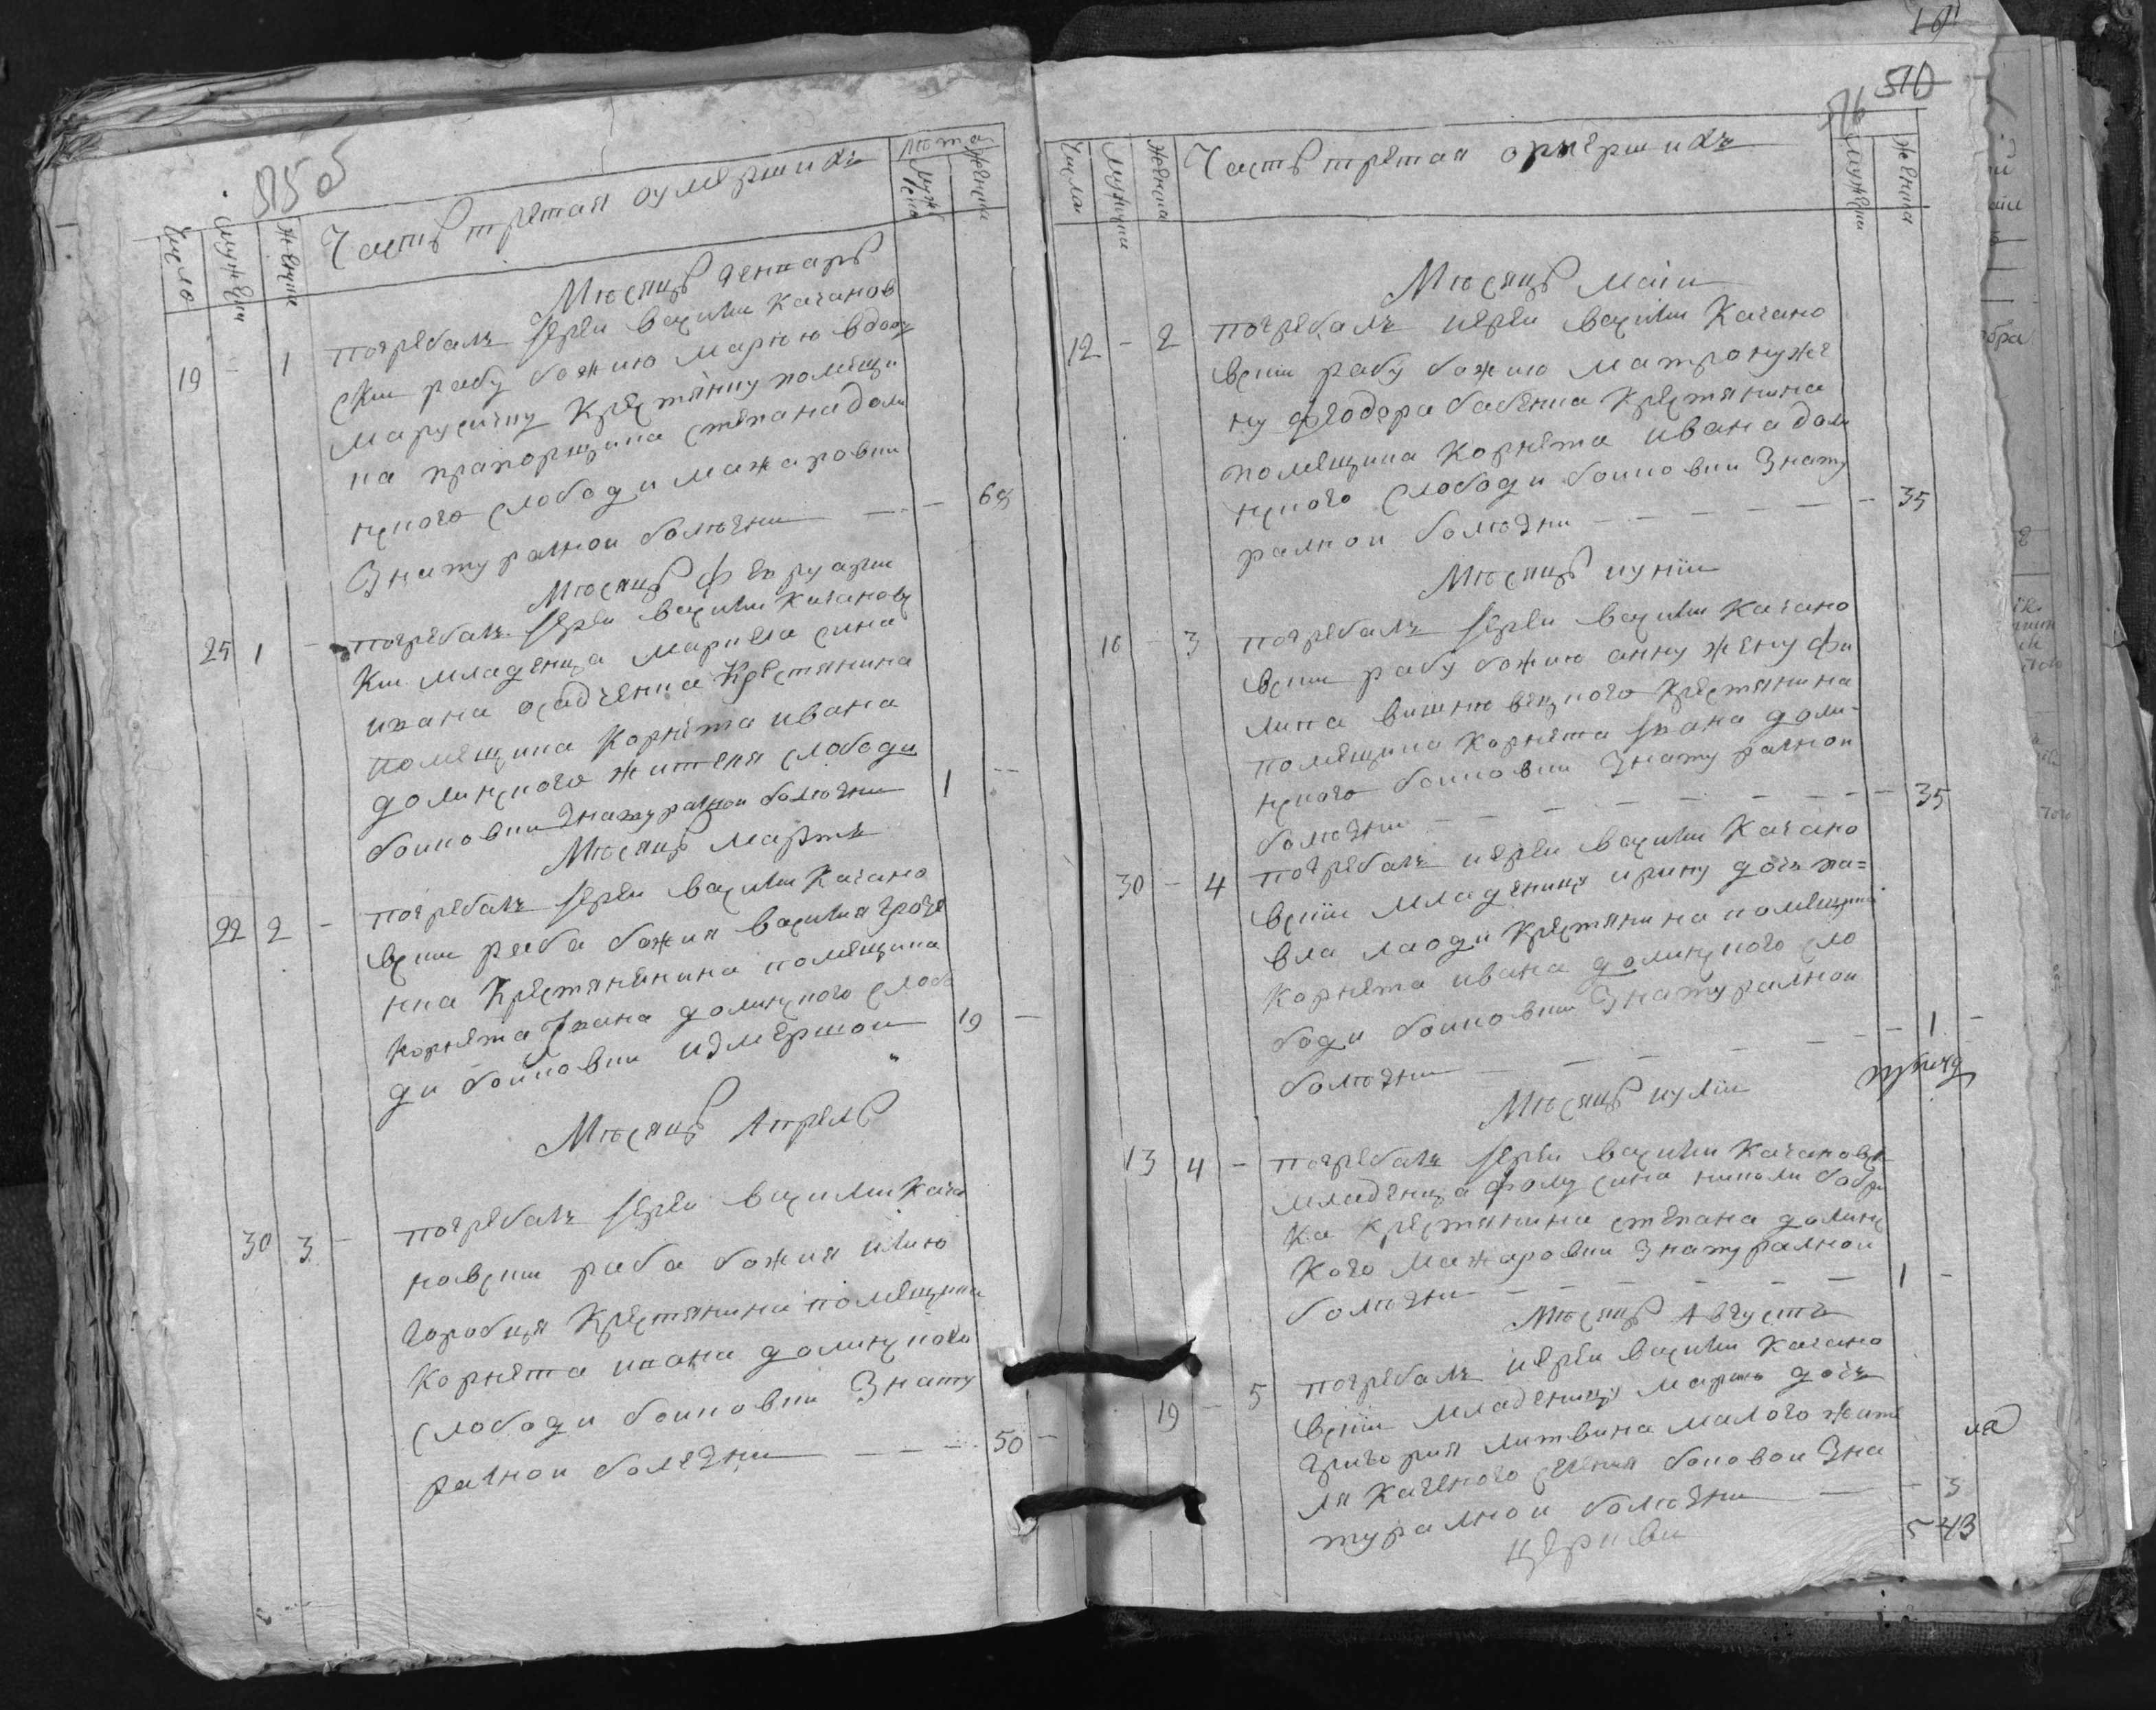 515 об
Число
мужеска
женска
Часть третая оумершихъ
лѣта
мужеска
женска
Мѣсяцъ Генварь
19 - 1 погребалъ іерей василий Качанов
ский рабу божию Марию вдову
Марусичку Крестянку помещи
ка прапорщика степана доли
нского слободи Мажаровки
З натуралной болѣзни — — 68
Мѣсяцъ Февруарий
25 1 - погребалъ іерей василий Качановс
кий младенца Маркела сина
ивана осадченка Крестянина
помещика Корнета ивана
долинского жителя слободи
боиковки З натуралной болѣзни 1 —
Мѣсяцъ Мартъ
22 2 - погребалъ іерей василий Качано
вский раба божия василия
нка Крестянинина помещика
Корнета Івана долинского слобо
ди боиковки измершои 19 —
Мѣсяцъ Апрель
30 3 - погребалъ іерей василий Кача
новский раба божия илию
горобця Крестянина помещика
Корнета ивана долинского
слободи боиковки З нату
ралной болезни — — — 50 —
510
516
Числа
мужеска
женска
Часть третая о умершихъ
мужеска
женска
Мѣсяцъ Маій
12 - 2 погребалъ иерей василий Качано
вский рабу божию Матрону же
ну феодора бабенка Крестянина
помещика Корнета ивана доли
нского слободи боиковки З нату
ралной болѣзни — — — — — — 35
Мѣсяцъ иуній
16 - 3 погребалъ іерей василий Качано
вский рабу божию анну жену фи
липа вишневецкого Крестянина
помещика Корнета Івана доли-
нского боиковки З натуралной
болѣзни — — — — — — — 35
30 - 4 погребалъ иерей василий Качано
вский младеницу ирину дочъ па=
вла Крестянина помещика
Корнета ивана долинского сло
боди боиковки З натуралной
болѣзни — — — — — 1 -
Мѣсяцъ иулій
13 4 - погребалъ іерей василий Качановск
младенца фому сина николи бобри
ка Крестянина степана долинс
кого Мажаровки З натуралной
болѣзни — — — — — — 1 -
Мѣсяцъ Августъ
19 - 5 погребалъ иерей василий Качано
вский младеницу Марию дочъ
григория литвина малого жите
ля Каченого З на
туралной болѣзни — — 3
5 43
церкви